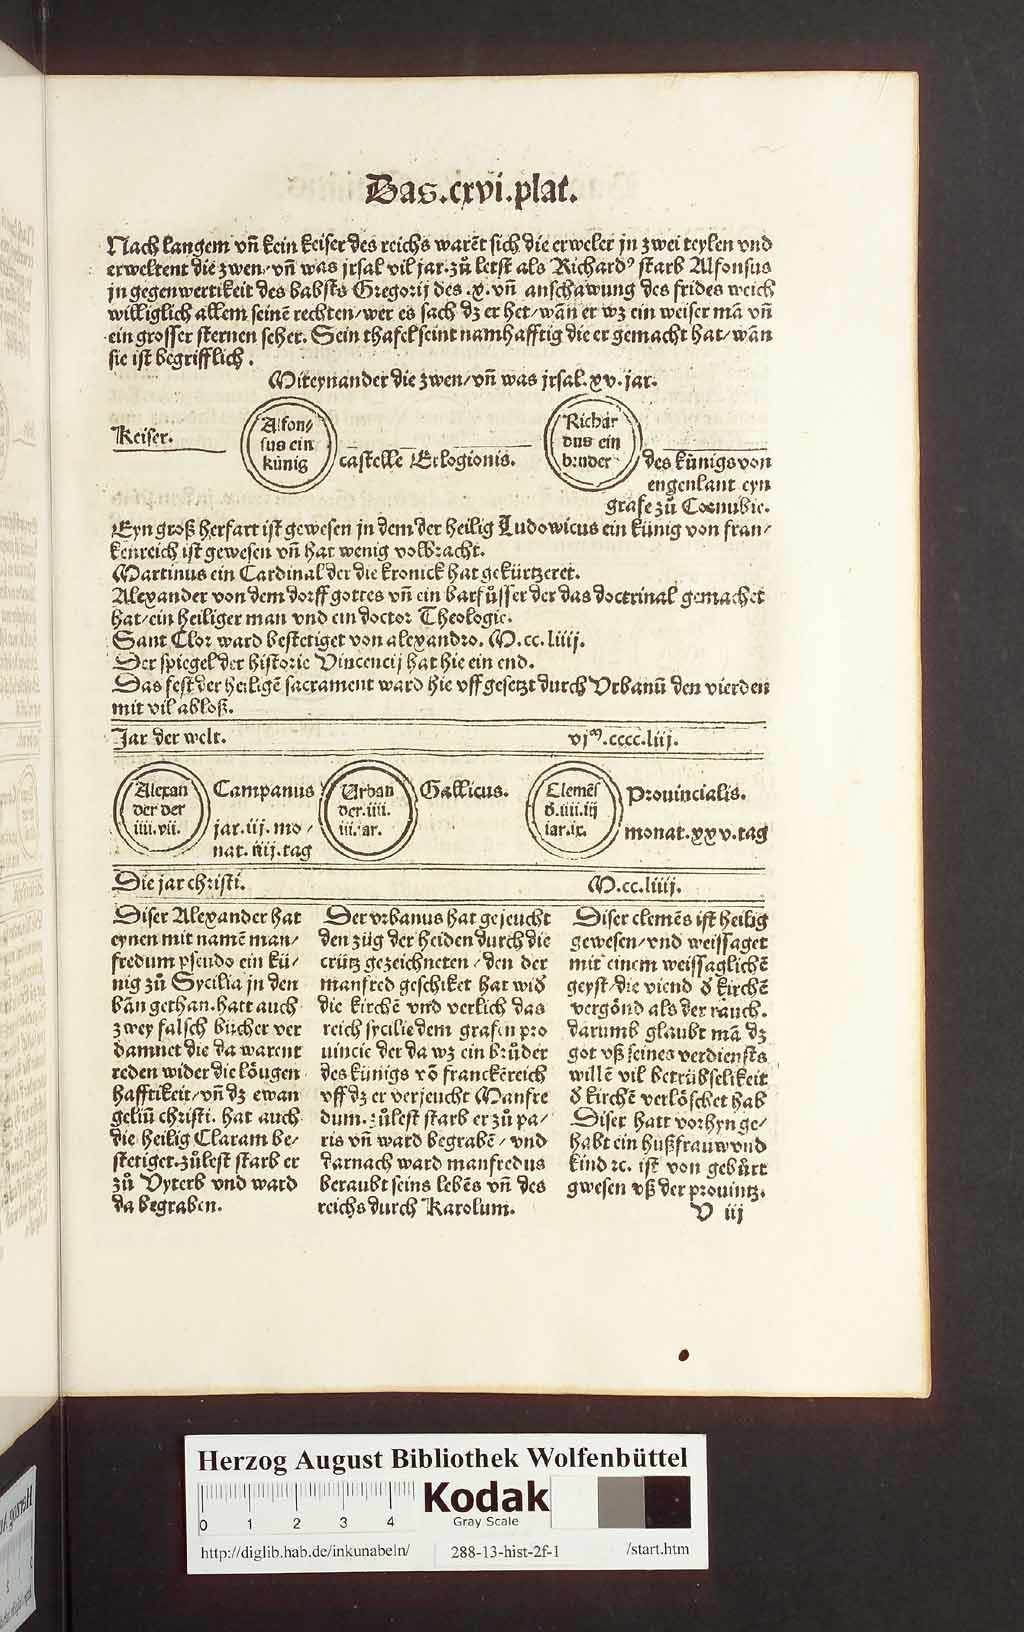 Das.cxvi.plat.
Nach langem vñ kein keiser des reichs warēt sich die erweler jn zwei teylen vnd
erweltent die zwen/vñ was jrsal vil jar.zů letst als Richardꝰ starb Alfonsus
jn gegenwertikeit des babsts Gregorij des .x. vñ anschawung des frides weich
williglich allem seinē rechten/wer es sach dz er het/wān er wz ein weiser mā vñ
ein grosser sternen seher. Sein thafel seint namhafftig die er gemacht hat/wān
sie ist begrifflich.
Miteynander die zwen/vñ was jrsal.xv.jar.
Keiser.
Alfon/
sus ein
künig
castelle Erlogionis.
Richar
dus ein
bruder
des künigs von
engenlant eyn
grafe zů Cornubie.
Eyn groß herfart ist gewesen jn dem der heilig Ludowicus ein künig von fran/
kenreich ist gewesen vñ hat wenig volbracht.
Martinus ein Cardinal der die kronick hat gekürtzeret.
Alexander von dem dorff gottes vñ ein barfůsser der das doctrinal gemachet
hat/ein heiliger man vnd ein doctor Theologie.
Sant Clor ward bestetiget von alexandro. M.cc.liiij.
Der spiegel der historie Vincencij hat hie ein end.
Das fest der heiligē sacrament ward hie vff gesetzt durch Vrbanū den vierden
mit vil abloß.
Jar der welt.
vjᵐ.cccc.liij.
Alexan
der der
iiij.vij.
Campanus
jar.iij.mo/
nat.iiij.tag
Urban
der.iiij.
iii.jar.
Gallicus.
Clemēs
d̕.iiii.iij
iar.ix.
Prouincialis.
monat.xxv.tag
Die jar christi.
M.cc.liiij.
Diser Alexander hat
eynen mit namē man/
fredum pseudo ein kü/
nig zů Sycilia jn den
bān gethan.hatt auch
zwey falsch bücher ver
damnet die da warent
reden wider die löugen
hafftikeit/vñ dz ewan
geliū christi. hat auch
die heilig Claram be/
stetiget.zůlest starb er
zů Vyterb vnd ward
da begraben.
Der vrbanus hat gejeucht
den züg der heiden durch die
crütz gezeichneten/den der
manfred geschiket hat wid̕
die kirchē vnd verlich das
reich sycilie dem grafen pro
uincie der da wz ein brůder
des künigs vō franckēreich
vff dz er verjeucht Manfre
dum.zůlest starb er zů pa/
ris vñ ward begrabē/vnd
darnach ward manfredus
beraubt seins lebēs vñ des
reichs durch Karolum.
Diser clemēs ist heilig
gewesen/vnd weissaget
mit einem weissaglichē
geyst/die viend d̕ kirchē
vergōnd als der rauch.
darumb glaubt mā dz
got vß seines verdiensts
willē vil betrübselikeit
d̕ kirchē verlöschet hab
Diser hatt vorhyn ge/
habt ein hußfrauw vnd
kind ꝛc. ist von gebůrt
gwesen vß der prouintz.
V iij
Herzog August Bibliothek Wolfenbüttel
0 1 2 3 4
Kodak
Gray Scale
http://diglib.hab.de/inkunabeln/
288-13-hist-2f-1
/start.htm